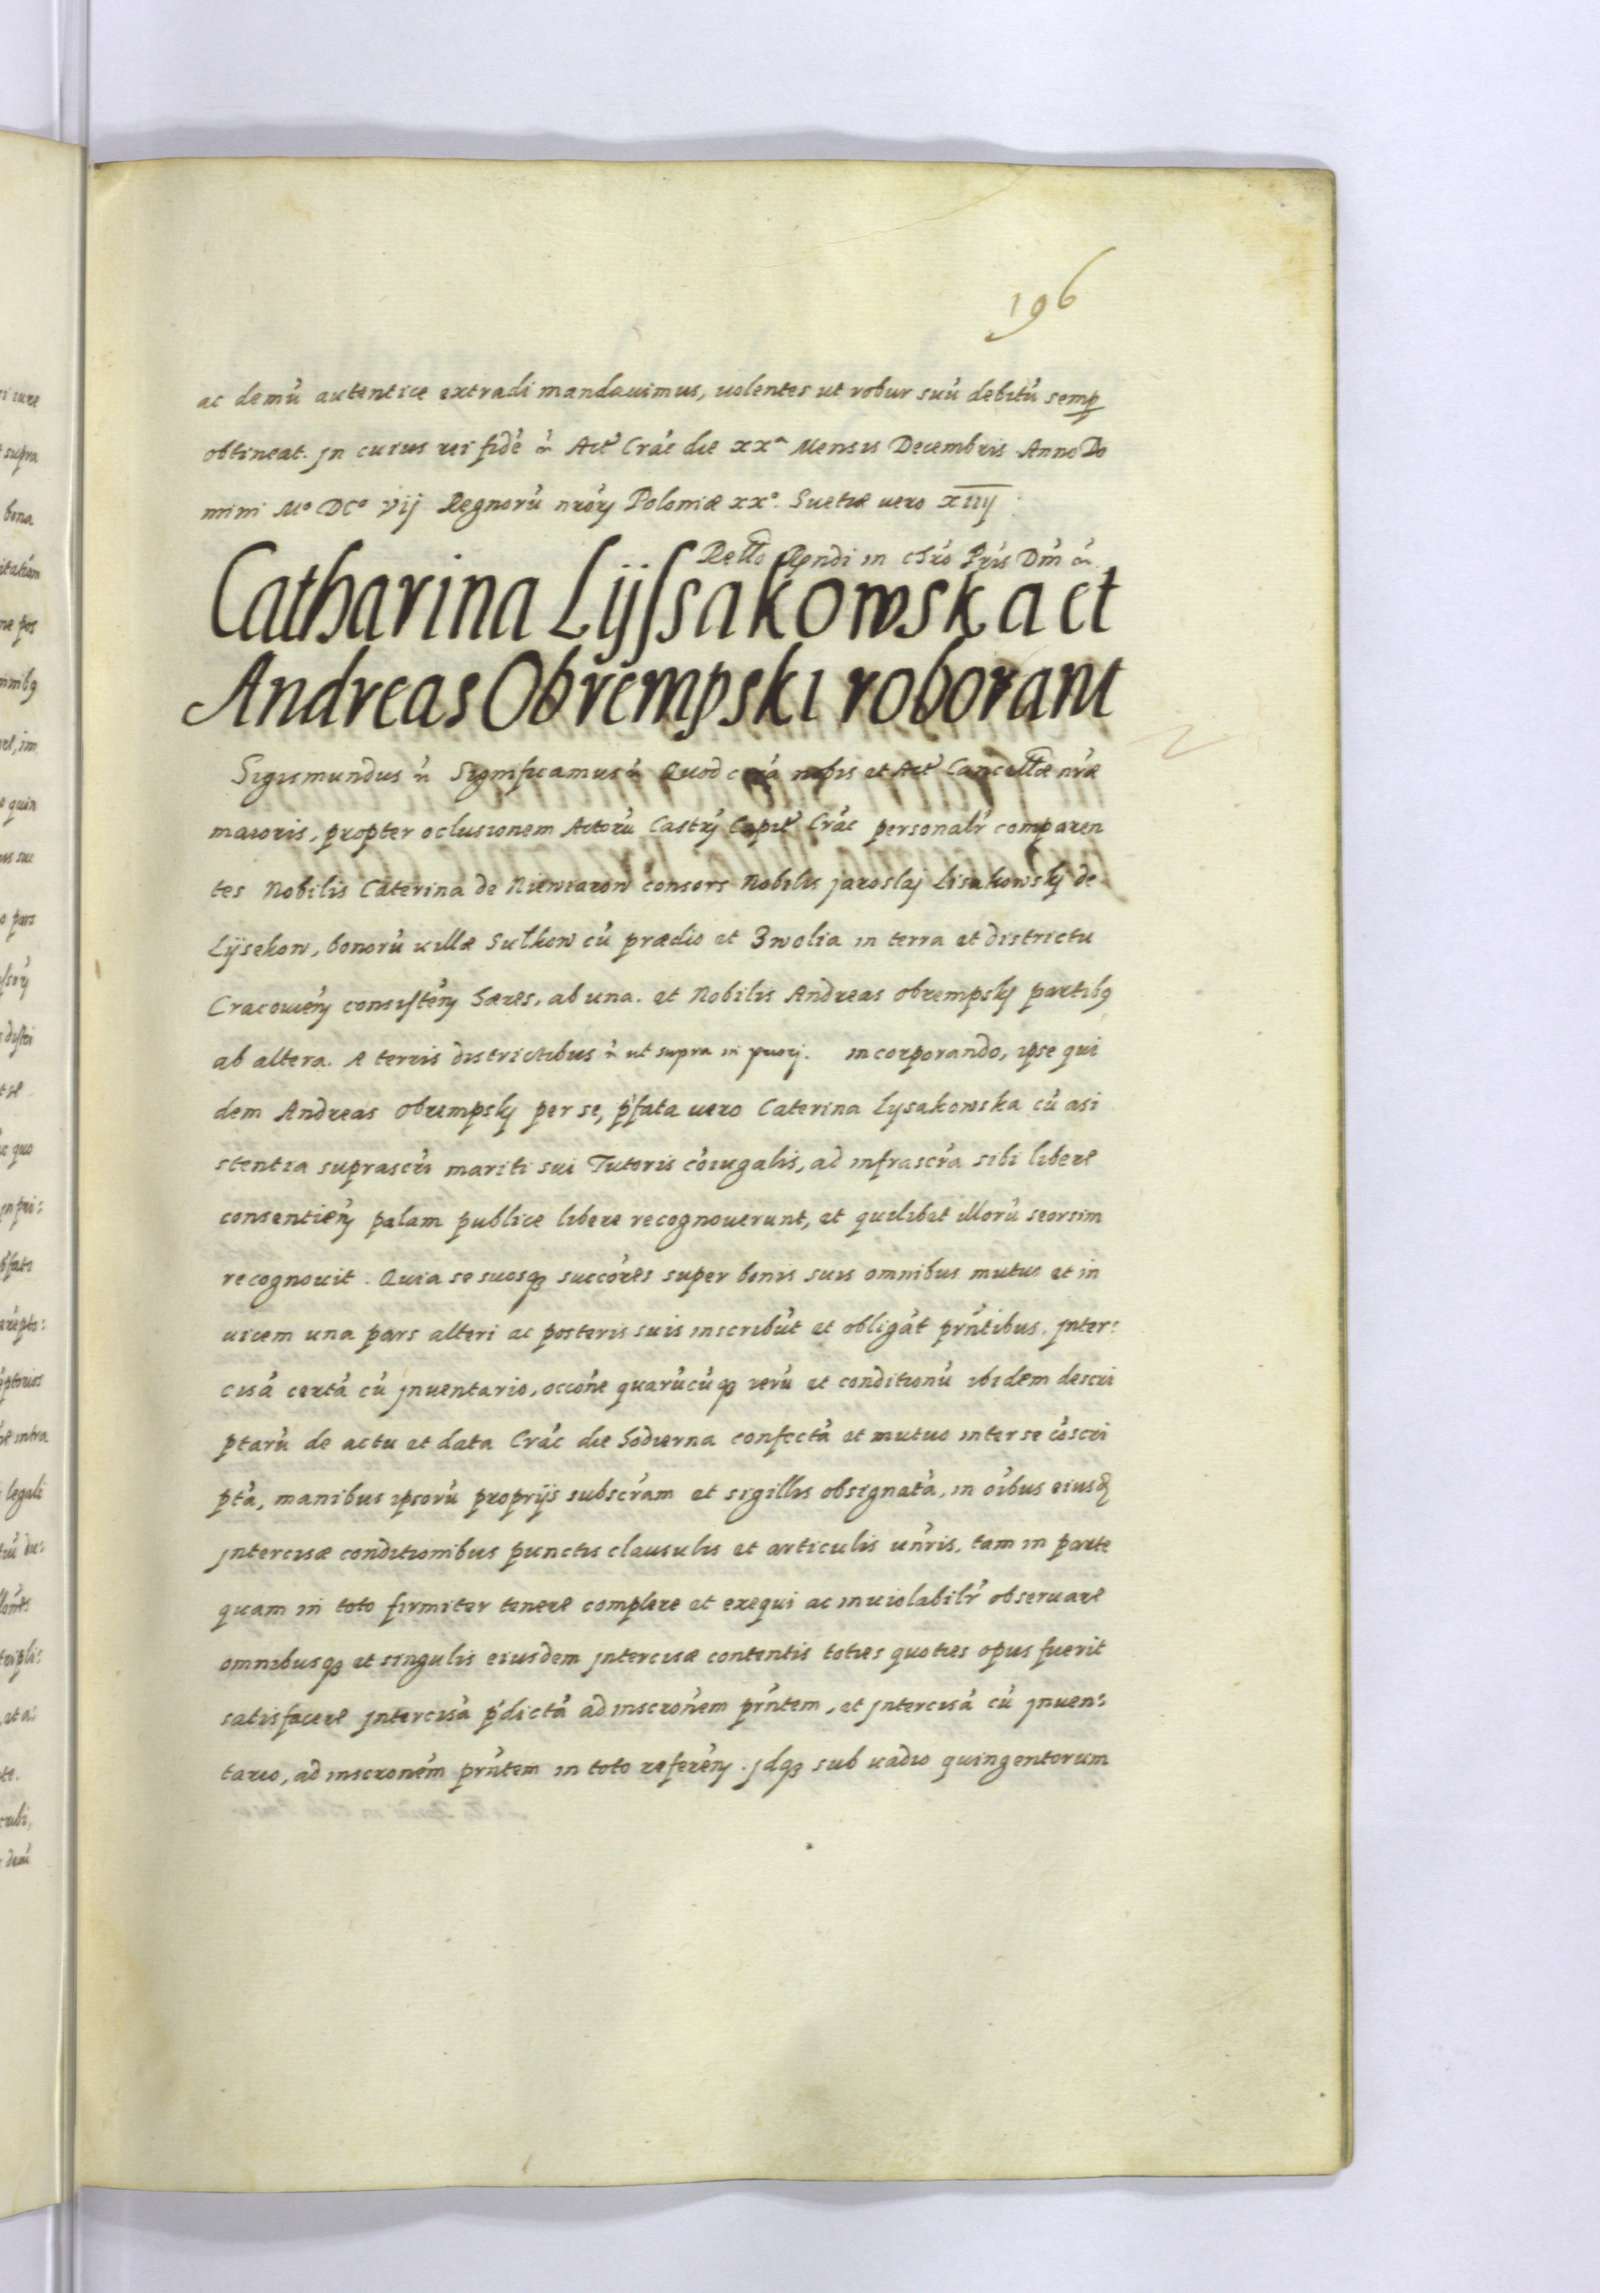 196
ac demũ autentice extradi mandauimus, uolentes ut robur suũ debitũ semp
obtineat. Jn cuius rei fidẽ Act̃ Crac̃ die xxa Mensis Decembris Anno Do
mini Mo DCo vij Regnorũ nr̃orȝ Poloniæ xxo. Suetiæ uero xiiij
Rello Rendi in chr̃o Pr̃is Dm̃
Catharina Lijſsakowska et
Andreas Obrempski roborant
Sigismundus Significamus Quod corã nobis et Act̃ Cancellæ nr̃æ
maioris, propter oclusionem Actorũ Castrȝ Capit̃ Crac̃ personalr̃ comparen
tes Nobilis Caterina de Niewiarow consors Nobilis jaroslaj Lisakowskj de
Lÿsekow, bonorũ uillæ Sulkow cũ prædio et Zwolia in terra et districtu
Cracouieñ consisteñ hæres, ab una. et Nobilis Andreas obrempskj partibȝ
ab altera. A terris districtibus ut supra in priorj. incorporando, ipse qui
dem Andreas obrempskj per se, p̃fata uero Caterina Lysakowska cũ asi
stentia suprascr̃i mariti sui Tutoris cõiugalis, ad infrascr̃a sibi libere
consentieñ palam publice libere recognouerunt, et quilibet illorũ seorsim
recognouit. Quia se suosqȝ succõres super bonis suis omnibus mutuo et in
uicem una pars alteri ac posteris suis inscribũt et obligãt pr̃ntibus. jnter:
cisã certã cũ jnuentario, occõne quarũcũqȝ rerũ et conditionũ ibidem descri
ptarũ de actu et data Crac̃ die hodierna confectã et mutuo inter se cõscri
ptã, manibus ipsorũ proprijs subscr̃am et sigillis obsignatã, in oĩbus eiusd
jntercisæ conditionibus punctis clausulis et articulis uñris, tam in parte
quam in toto firmiter tenere complere et exequi ac inuiolabilr̃ obseruare
omnibusqȝ et singulis eiusdem jntercisæ contentis toties quoties opus fuerit
satisfacere jntercisã p̃dictã ad inscronẽm pr̃ntem, et jntercisã cũ jnuen:
tario, ad inscronẽm pr̃ntem in toto refereñ. jdqȝ sub uadio quingentorum